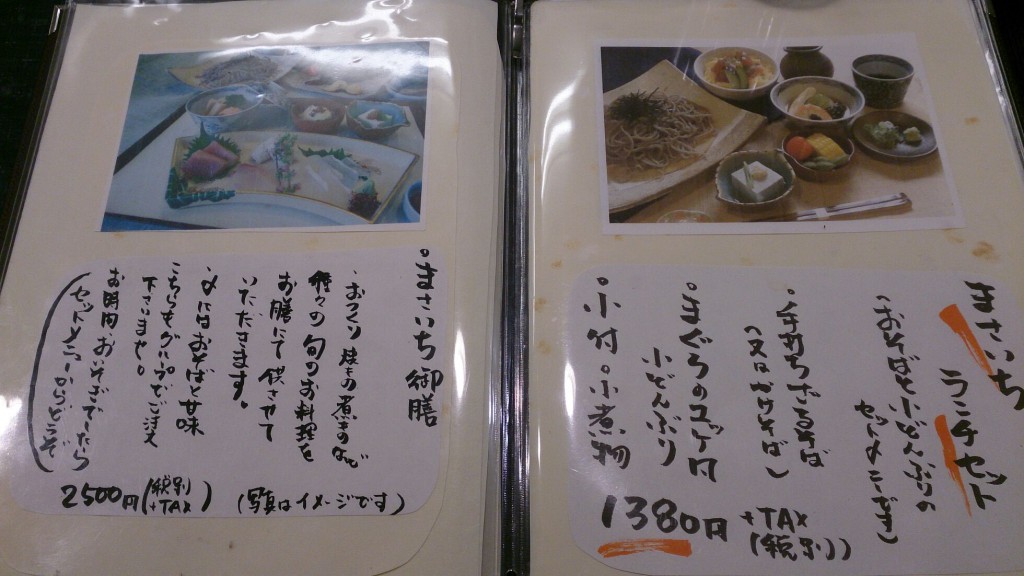 まさいち
ランチセット
(おそばと小どんぶりの
セットメニューです)
・手打ちざるそば
(又はかけそば)
・まぐろのユッケ丼
小どんぶり
・小付・小煮物
1380円 +TAX
(税別)
・まさいち御膳
種々の旬のお料理を
お膳にて供させて
いただきます。
〆にはおそばと甘味
こちらもグループでご注文
下さいませ。
お時間おいそぎでしたら
(セットメニューからどうぞ)
2500円(税別
+TAX)
(写真はイメージです)